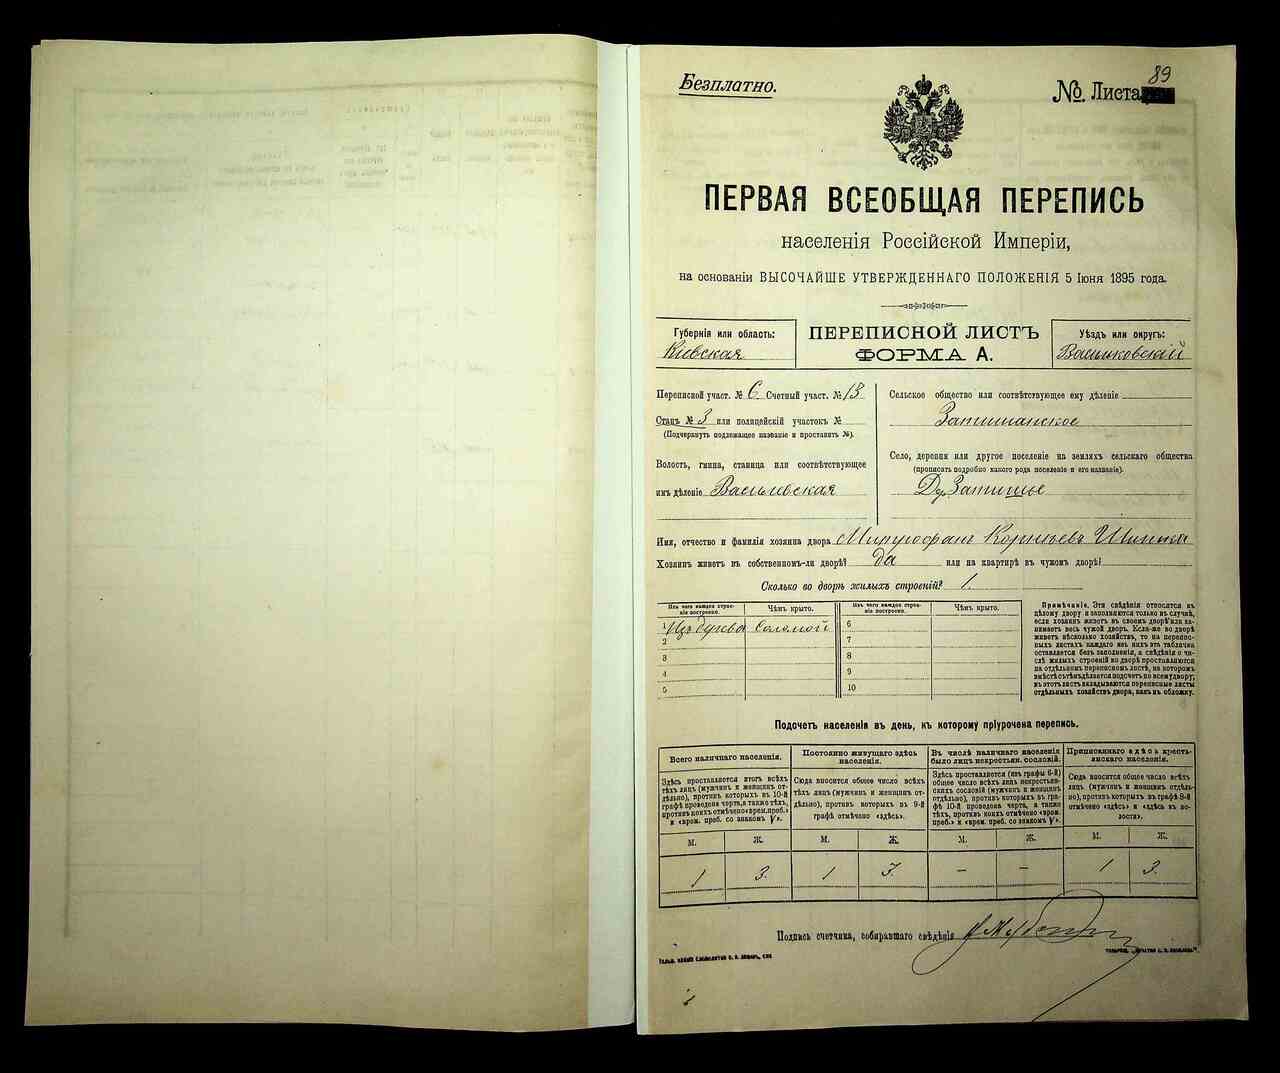 Безплатно.
89
№ Листа
ПЕРВАЯ ВСЕОБЩАЯ ПЕРЕПИСЬ
населенія Россійской Имперіи,
на основаніи ВЫСОЧАЙШЕ УТВЕРЖДЕННАГО ПОЛОЖЕНІЯ 5 Іюня 1895 года.
Губернія или область:
Кіевская
ПЕРЕПИСНОЙ ЛИСТЪ
ФОРМА А.
Уѣздъ или округъ:
Васильковскій
Переписной участ. № 6 Счетный участ. № 13
Станъ № 3 или полицейскій участокъ №
(Подчеркнуть подлежащее названіе и проставить №).
Волость, гмина, станица или соотвѣтствующее
имъ дѣленіе Васильевская
Сельское общество или соотвѣтствующее ему дѣленіе
Затишанское
Село, деревня или другое поселеніе на земляхъ сельскаго общества
(прописать подробно какого рода поселеніе и его названіе).
Дер. Затишье
Имя, отчество и фамилія хозяина двора Митрофанъ Корнѣевъ
Хозяинъ живетъ въ собственномъ-ли дворѣ? да или на квартирѣ въ чужомъ дворѣ?
Сколько во дворѣ жилыхъ строеній? 1.
Изъ чего каждое строе-
ніе построено.
Чѣмъ крыто.
Изъ чего каждое строе-
ніе построено.
Чѣмъ крыто.
1 Изъ дерева Соломой
2
3
4
5
6
7
8
9
10
Примѣчаніе. Эти свѣдѣнія относятся къ
цѣлому двору и заполняются только въ случаѣ,
если хозяинъ живетъ въ своемъ дворѣ или за-
нимаетъ весь чужой дворъ. Если-же во дворѣ
живетъ нѣсколько хозяйствъ, то на перепис-
ныхъ листахъ каждаго изъ нихъ эта табличка
оставляется безъ заполненія, а свѣдѣнія о чи-
слѣ жилыхъ строеній во дворѣ проставляются
на отдѣльномъ переписномъ листѣ, на которомъ
вмѣстѣ съ тѣмъ дѣлается подсчетъ по всему двору;
въ этотъ листъ вкладываются переписные листы
отдѣльныхъ хозяйствъ двора, какъ въ обложку.
Подсчетъ населенія въ день, къ которому пріурочена перепись.
Всего наличнаго населенія.
Здѣсь проставляется итогъ всѣхъ
тѣхъ лицъ (мужчинъ и женщинъ от-
дѣльно), противъ которыхъ въ 10-й
графѣ проведена черта, а также тѣхъ,
противъ коихъ отмѣчено «врем. преб.»
и «врем. преб. со знакомъ V».
Постоянно живущаго здѣсь
населенія.
Сюда вносится общее число всѣхъ
тѣхъ лицъ (мужчинъ и женщинъ от-
дѣльно), противъ которыхъ въ 9-й
графѣ отмѣчено «здѣсь».
Въ числѣ наличнаго населенія
было лицъ некрестьян. сословій.
Здѣсь проставляется (изъ графы 6-й)
общее число всѣхъ лицъ некрестьян-
скихъ сословій (мужчинъ и женщинъ
отдѣльно), противъ которыхъ въ гра-
фѣ 10-й проведена черта, а также
тѣхъ, противъ коихъ отмѣчено «врем.
преб.» и «врем. преб. со знакомъ V».
Приписаннаго здѣсь кресть-
янскаго населенія.
Сюда вносится общее число всѣхъ
лицъ (мужчинъ и женщинъ отдѣль-
но), противъ которыхъ въ графѣ 8-й
отмѣчено «здѣсь» и «здѣсь къ во-
лости».
М. Ж. М. Ж. М. Ж. М. Ж.
1 3. 1 3. – – 1 3.
Подпись счетчика, собиравшаго свѣдѣнія